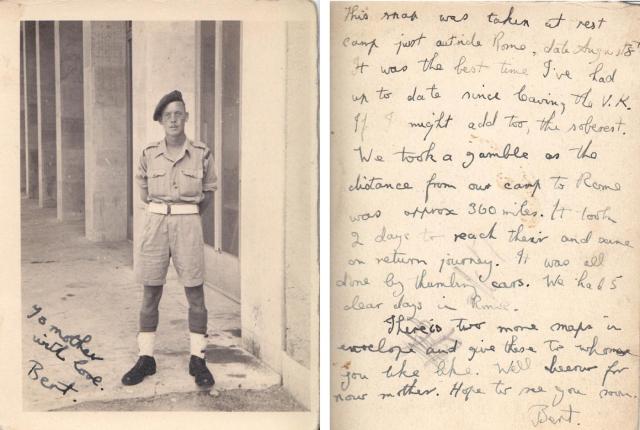 To mother
with love.
Bert.
This snap was taken at rest
camp just outside Rome, date August 8th
It was the best time I've had
up to date since leaving the U.K.
If I might add too, the soberest.
We took a gamble as the
distance from our camp to Rome
was approx 360 miles. It took
2 days to reach their and same
on return journey. It was all
done by thumbing cars. We had 5
clear days in Rome.
There is two more snaps in
envelope and give these to whom
you like like. Well cheerio for
now mother. Hope to see you soon.
Bert.